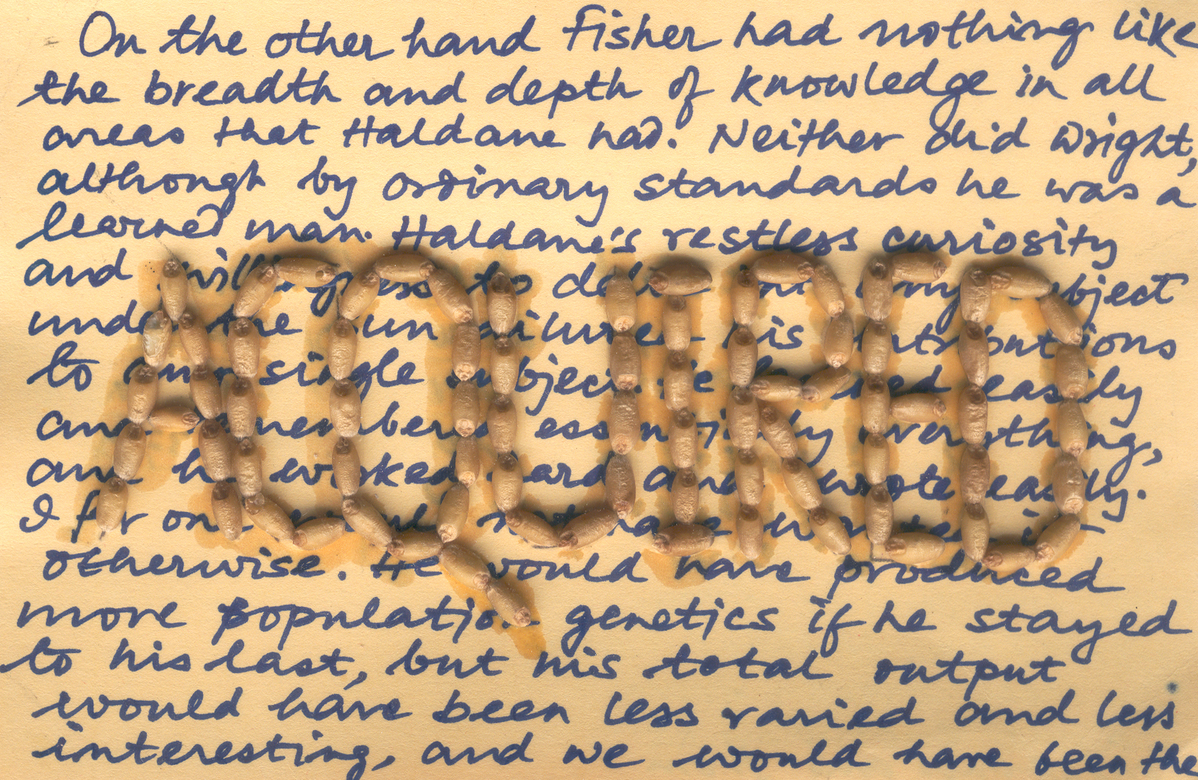 On the other hand Fisher had nothing like
the breadth and depth of knowledge in all
areas that Haldane had. Neither did Wright,
although by ordinary standards he was a
learned man. Haldane's restless curiosity
and willingness to any subject
under the sun diluted his contributions
to any single subject. He learned easily
and remembered essentially everything,
and he worked hard and wrote easily.
I for one would not have wanted it
otherwise. He would have produced
more population genetics if he stayed
to his last, but his total output
would have been less varied and less
interesting, and we would have been the
ACQUIRED